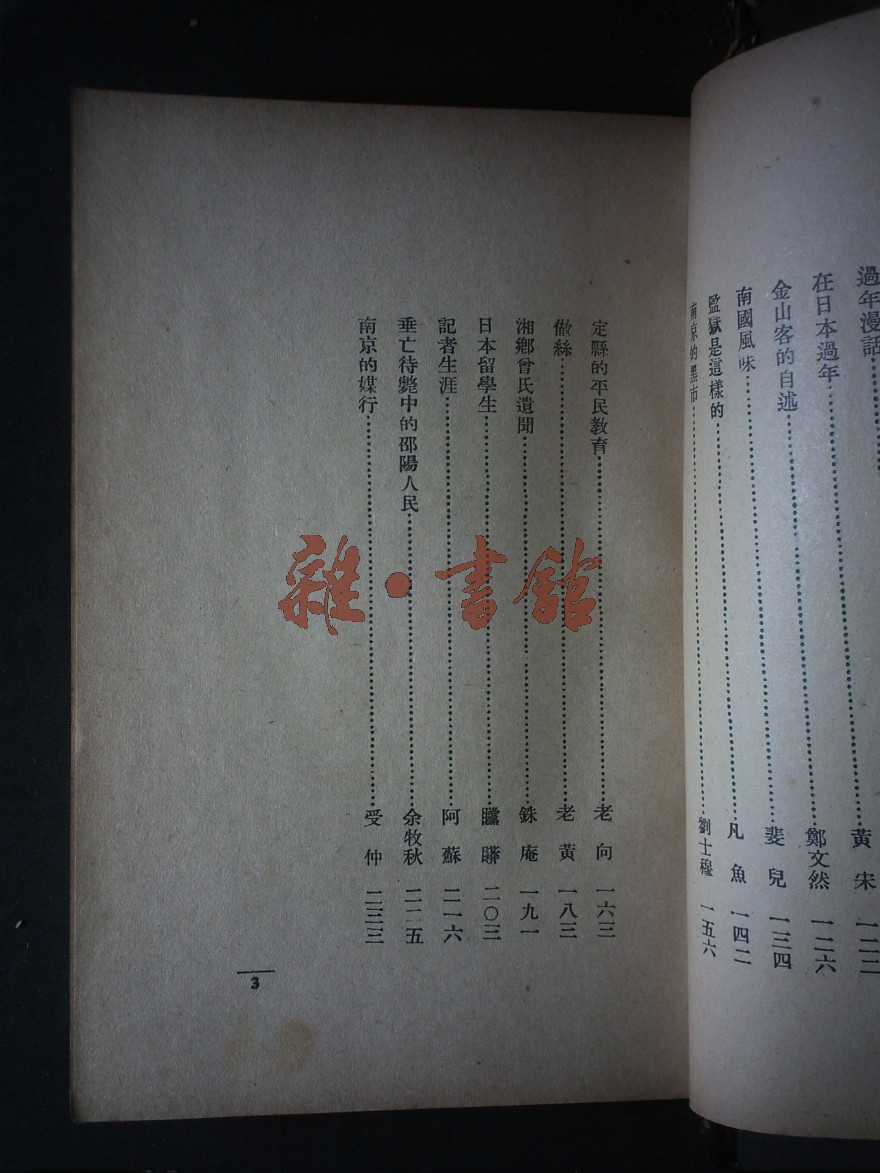 過年漫話……黃朱 一二二
在日本過年……鄭文然 一二六
金山客的自述……斐兒 一三四
南國風味……凡魚 一四二
監獄是這樣的
南京的黑市……劉士穆 一五六
定縣的平民教育……老向 一六三
做絲……老黃 一八三
湘鄉曾氏遺聞……銖庵 一九一
日本留學生……二〇三
記者生涯……阿蘇 二一六
垂亡待斃中的邵陽人民……余牧秋 二二五
南京的媒行……受仲 二三三
3
雜·書館